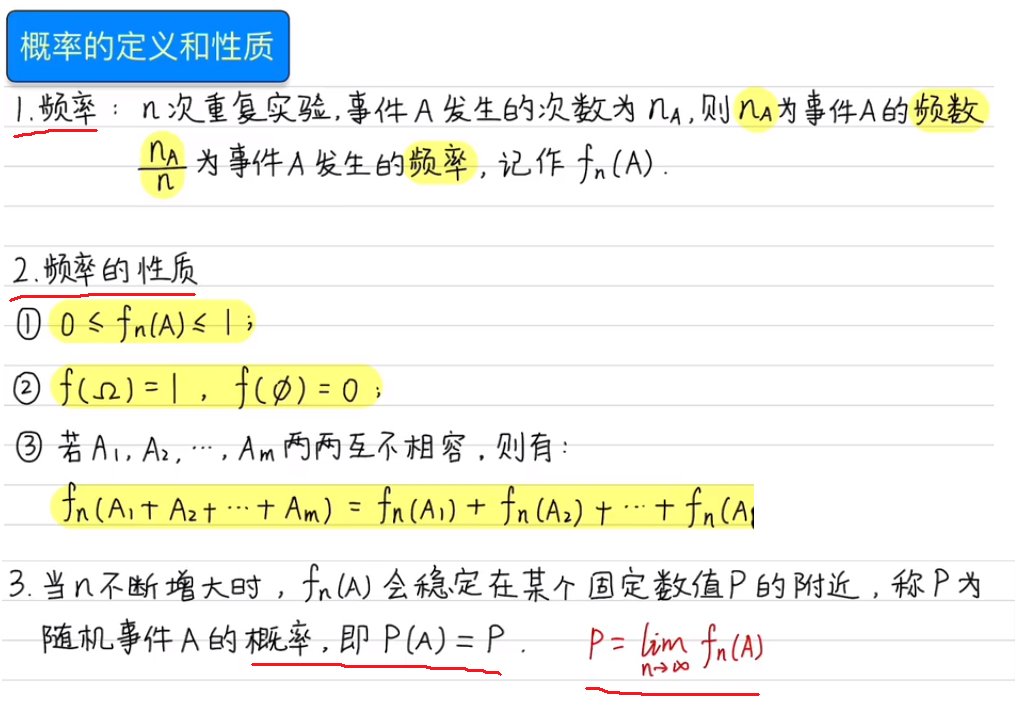 概率的定义和性质
1.频率：n次重复实验,事件A发生的次数为n_A,则n_A为事件A的频数
n_A/n 为事件A发生的频率,记作f_n(A).
2.频率的性质
① 0≤f_n(A)≤1;
② f(Ω)=1,f(∅)=0;
③ 若A₁,A₂,…,Aₘ两两互不相容,则有:
f_n(A₁+A₂+…+Aₘ)=f_n(A₁)+f_n(A₂)+…+f_n(A
3.当n不断增大时,f_n(A)会稳定在某个固定数值P的附近,称P为
随机事件A的概率,即P(A)=P. P=lim_{n→∞} f_n(A)